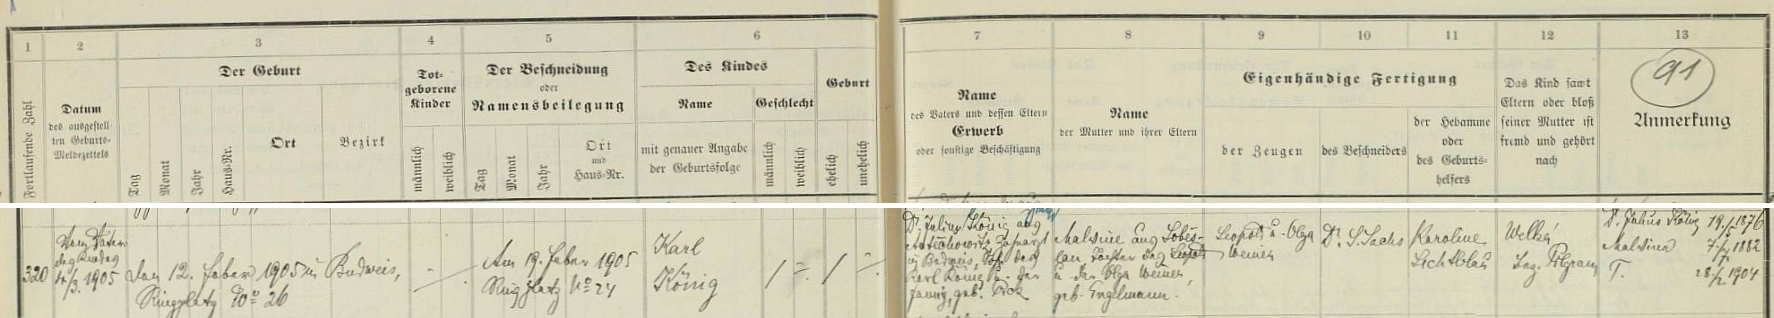 1 2 3 4 5 6
Fortlaufende Zahl
Datum
des ausgestell-
ten Geburts-
Meldezettels
Der Geburt
Tag Monat Jahr Haus-Nr. Ort Bezirk
Tot-
geborene
Kinder
männlich weiblich
Der Beschneidung
oder
Namensbeilegung
Tag Monat Jahr
Ort
und
Haus-Nr.
Des Kindes
Name
mit genauer Angabe
der Geburtsfolge
Geschlecht
männlich weiblich
Geburt
ehelich unehelich
7 8 9 10 11 12 13
Name
des Vaters und dessen Eltern
Erwerb
oder sonstige Beschäftigung
Name
der Mutter und ihrer Eltern
Eigenhändige Fertigung
der Zeugen
des Beschneiders
der Hebamme
oder
des Geburts-
helfers
Das Kind samt
Eltern oder bloß
seiner Mutter ist
fremd und gehört
nach
91
Anmerkung
320
Vom Vater
des Kindes
4/3. 1905
Den 12. Feber 1905 in Budweis,
Ringplatz No 26
Am 19. Feber 1905
Ringplatz No 24
Karl
König
Dr. Julius König aus
in Budweis, Sohn des
Karl König u. der
Fanny, geb. Pick
Malvine aus Lobes-
lau Tochter des Leopold
u. der Olga Weiner,
geb. Engelmann.
Leopold u. Olga
Weiner
Dr. S. Sachs
Karoline
Lichtblau
Welká
bez. Pilgram
Dr. Julius König 19/5 1876
Malvine 1882
T. 28/2 1904